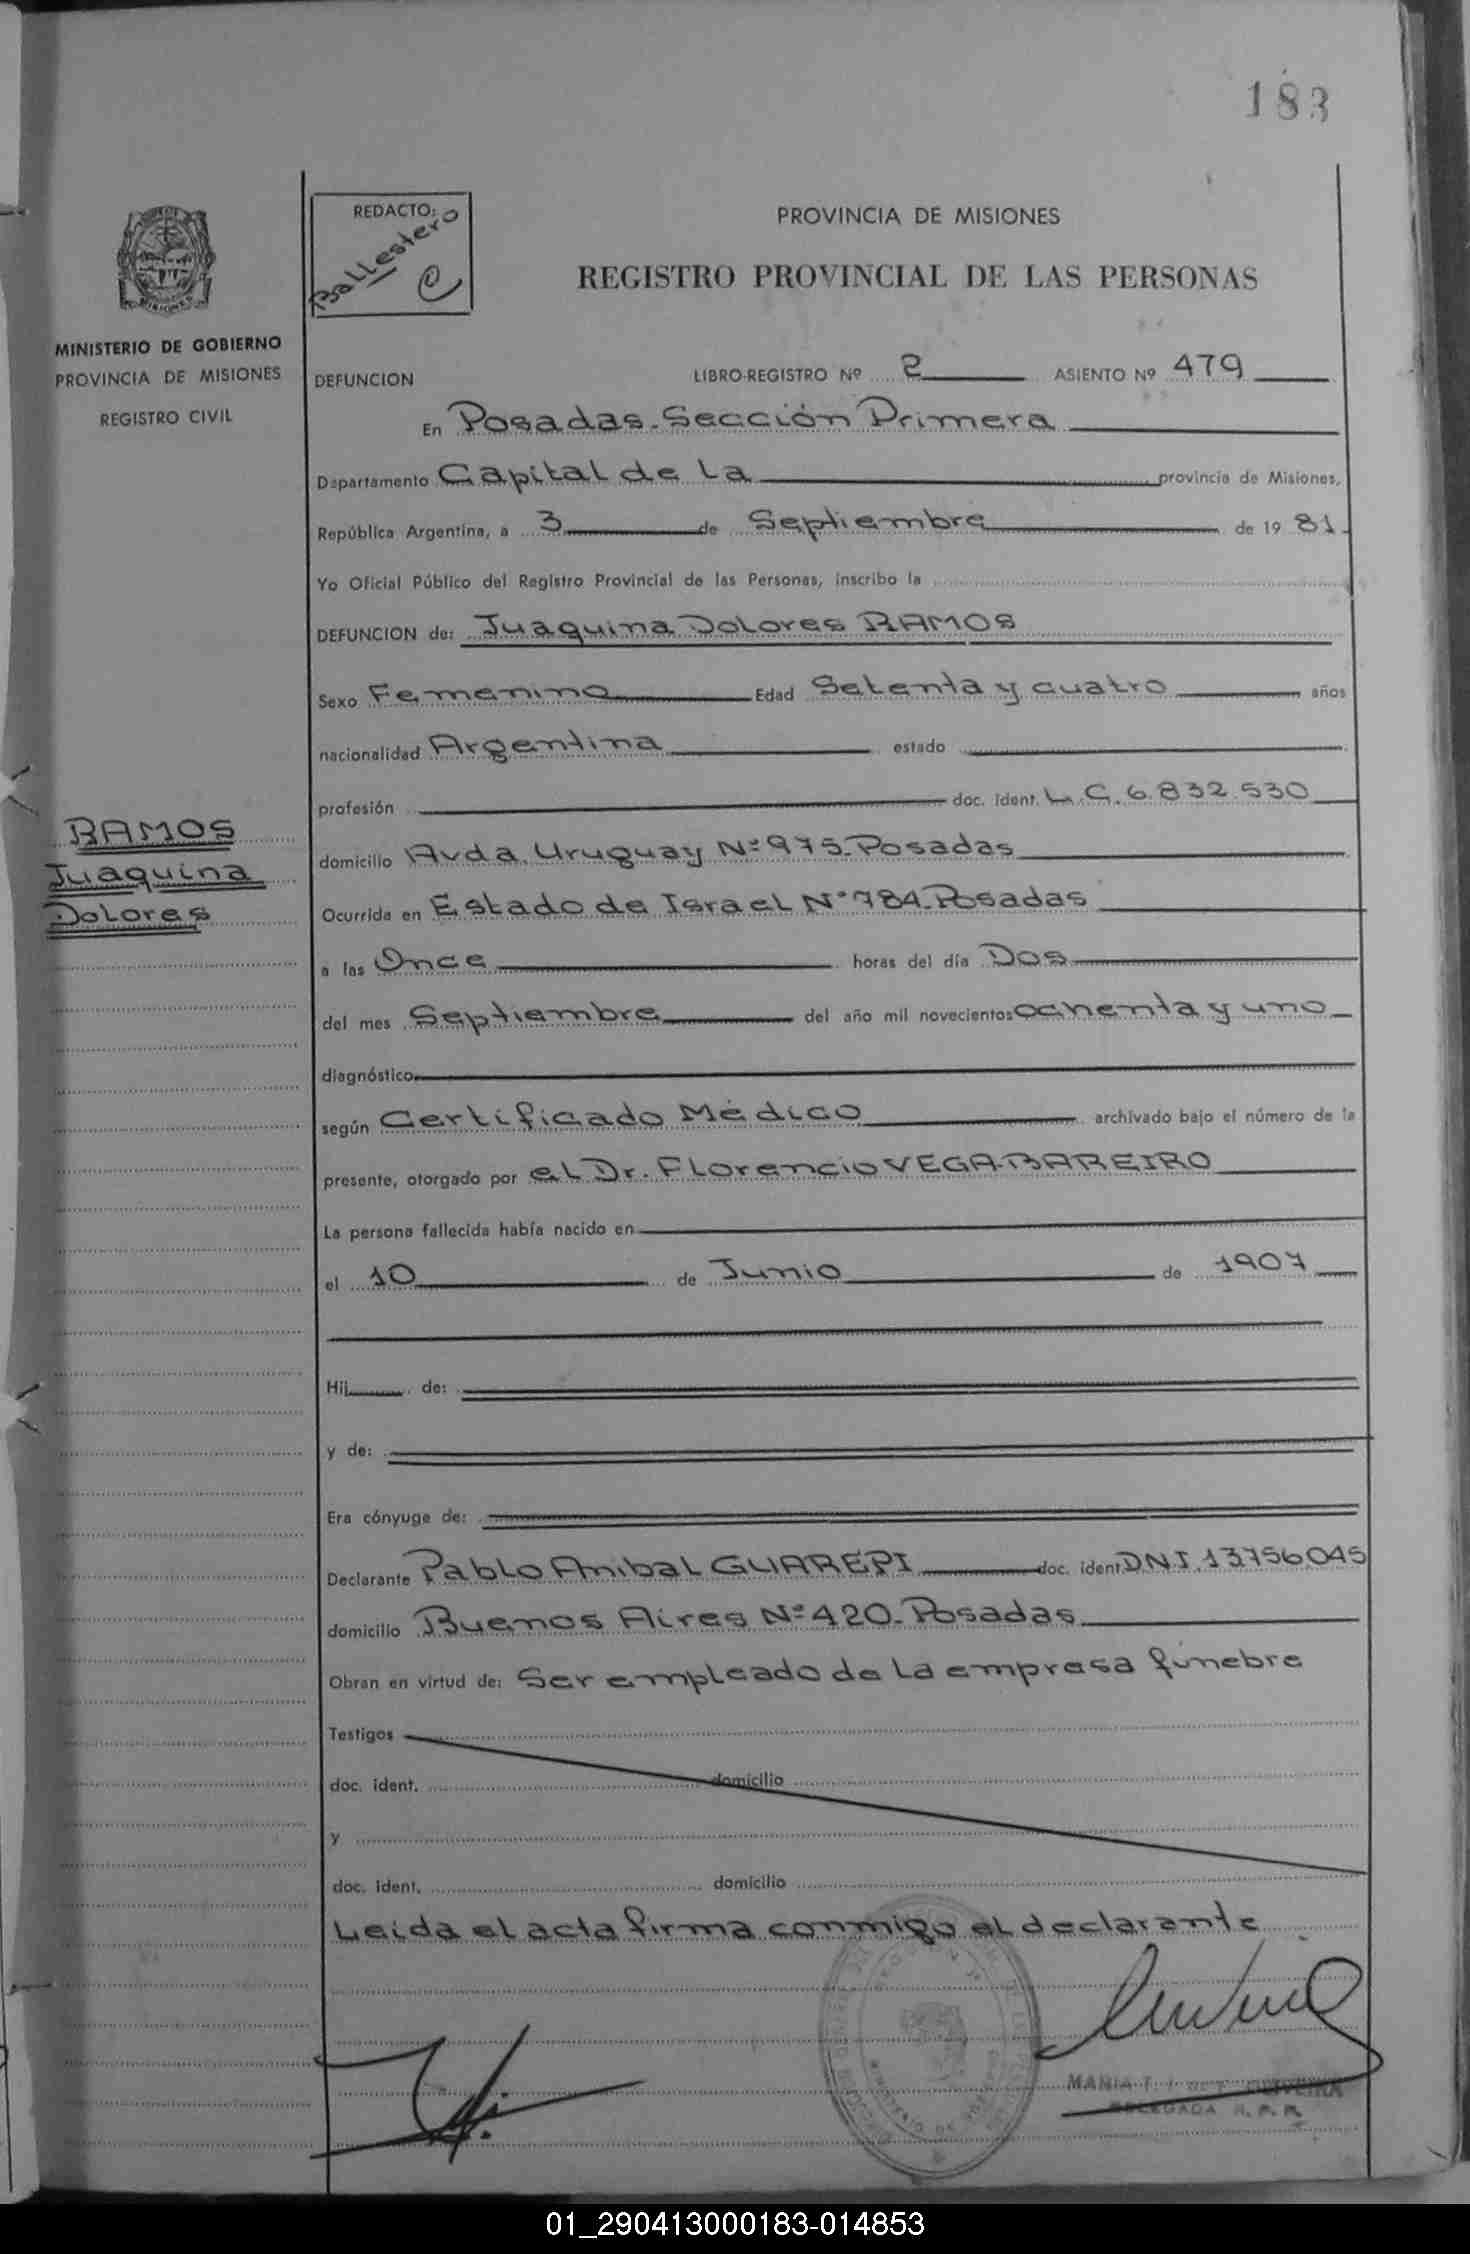 183
REDACTO:
Ballestero
C
PROVINCIA DE MISIONES
REGISTRO PROVINCIAL DE LAS PERSONAS
MISIONES
MINISTERIO DE GOBIERNO
PROVINCIA DE MISIONES
REGISTRO CIVIL
DEFUNCION LIBRO-REGISTRO Nº 2 ASIENTO Nº 479
En Posadas-Sección Primera
Departamento Capital de La provincia de Misiones,
República Argentina, a 3 de Septiembre de 19 81.
Yo Oficial Público del Registro Provincial de las Personas, inscribo la
DEFUNCION de: Juaquina Dolores RAMOS
Sexo Femenino Edad Setenta y cuatro años
nacionalidad Argentina estado
profesión doc. ident. L.C. 6.832.530
RAMOS
Juaquina
Dolores
domicilio Avda. Uruguay Nº 975-Posadas
Ocurrida en Estado de Israel Nº 784-Posadas
a las Once horas del día Dos
del mes Septiembre del año mil novecientos ochenta y uno
diagnóstico
según Certificado Médico archivado bajo el número de la
presente, otorgado por el Dr. Florencio VEGA-BAREIRO
La persona fallecida había nacido en
el 10 de Junio de 1907
Hij de:
y de:
Era cónyuge de:
Declarante Pablo Anibal GUAREPI doc. ident. DNI. 13756045
domicilio Buenos Aires Nº 420-Posadas
Obran en virtud de: Ser empleado de la empresa fúnebre
Testigos
doc. ident. domicilio
y
doc. ident. domicilio
Leida el acta firma conmigo el declarante
MARIA OLIVEIRA
DELEGADA R. P. P.
01_290413000183-014853